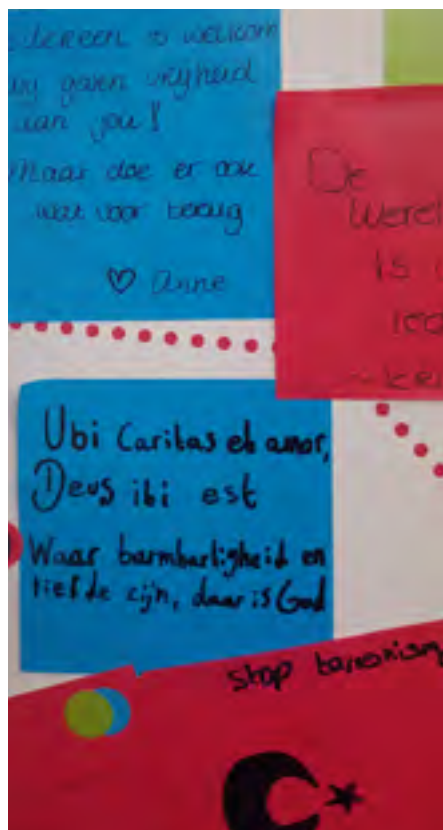 iedereen is welkom
wij geven vrijheid
aan jou!
Maar doe er ook
wat voor terug
♡ Anne
De
Werel
is
Ubi Caritas et amor,
Deus ibi est
Waar barmhartigheid en
liefde zijn, daar is God
stop terrorism